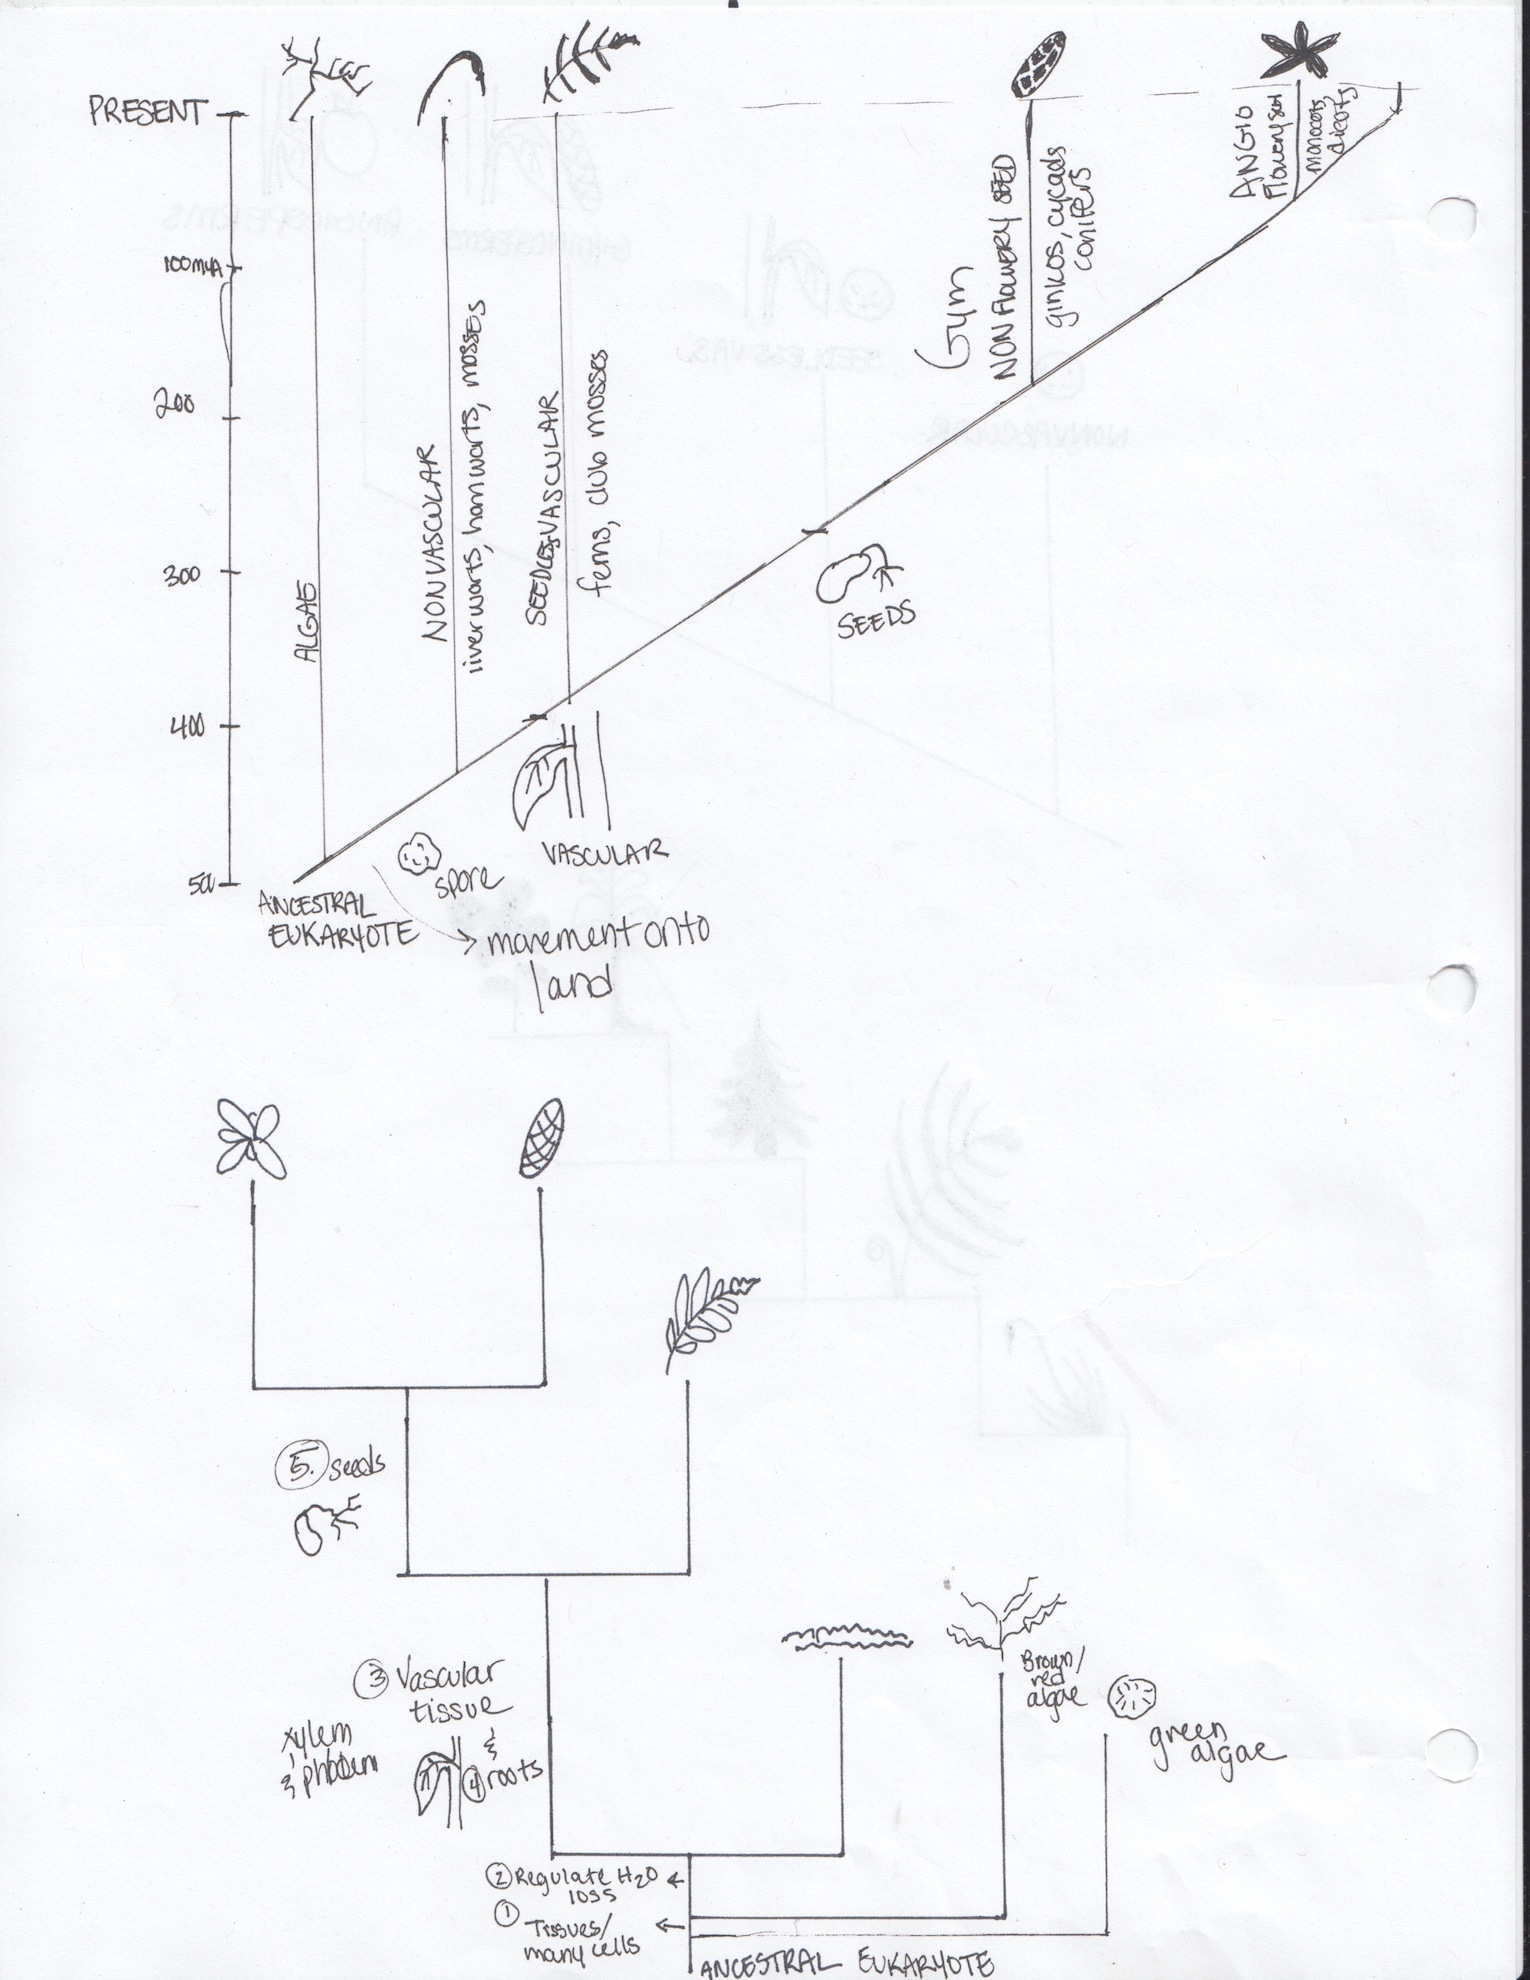 PRESENT
100mya
200
300
400
500
ALGAE
NONVASCULAR
liverworts, hornworts, mosses
SEEDLESS VASCULAR
ferns, club mosses
Gym
NON FLOWERY SEED
ginkos, cycads
conifers
ANGIO
Flowery seed
monocots,
dicots
SEEDS
VASCULAR
spore
ANCESTRAL
EUKARYOTE
movement onto
land
5. seeds
3 Vascular
tissue
xylem
& phloem
&
4 roots
Brown/
red
algae
green
algae
2 Regulate H2O
loss
1 Tissues/
many cells
ANCESTRAL EUKARYOTE